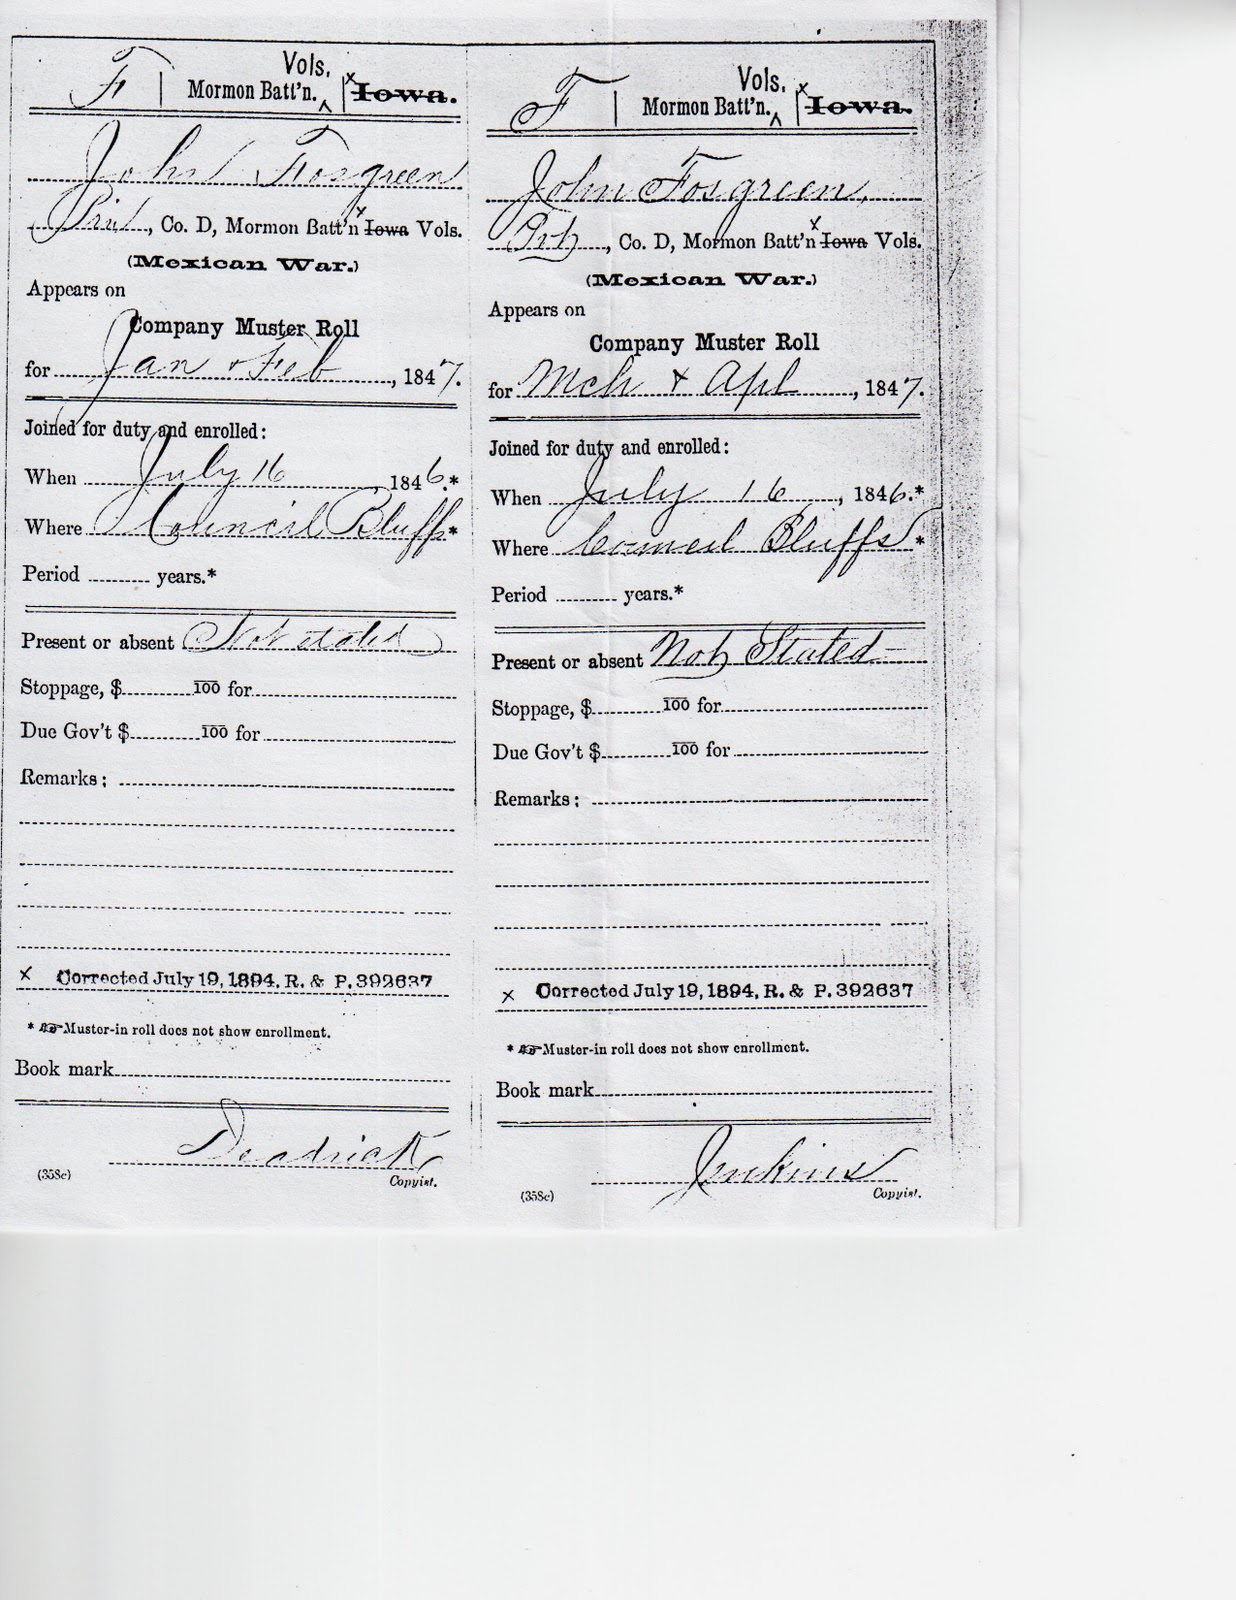 F | Mormon Batt'n. ^ Vols. | x Iowa.
John Fosgreen
Priv, Co. D, Mormon Batt'n x Iowa Vols.
(Mexican War.)
Appears on
Company Muster Roll
for Jan & Feb, 1847.
Joined for duty and enrolled:
When July 16 1846.*
Where Council Bluffs*
Period ........ years.*
Present or absent Not stated
Stoppage, $ ........ 100 for
Due Gov't $ ........ 100 for
Remarks:
x Corrected July 19, 1894. R. & P. 392637
* ☞Muster-in roll does not show enrollment.
Book mark
Deadrick
(358c) Copyist.
F | Mormon Batt'n. ^ Vols. | x Iowa.
John Fosgreen,
Pvt, Co. D, Mormon Batt'n x Iowa Vols.
(Mexican War.)
Appears on
Company Muster Roll
for Mch & Apl, 1847.
Joined for duty and enrolled:
When July 16, 1846.*
Where Council Bluffs *
Period ........ years.*
Present or absent Not Stated
Stoppage, $ ........ 100 for
Due Gov't $ ........ 100 for
Remarks:
x Corrected July 19, 1894. R. & P. 392637
* ☞Muster-in roll does not show enrollment.
Book mark
Jenkins
(358c) Copyist.